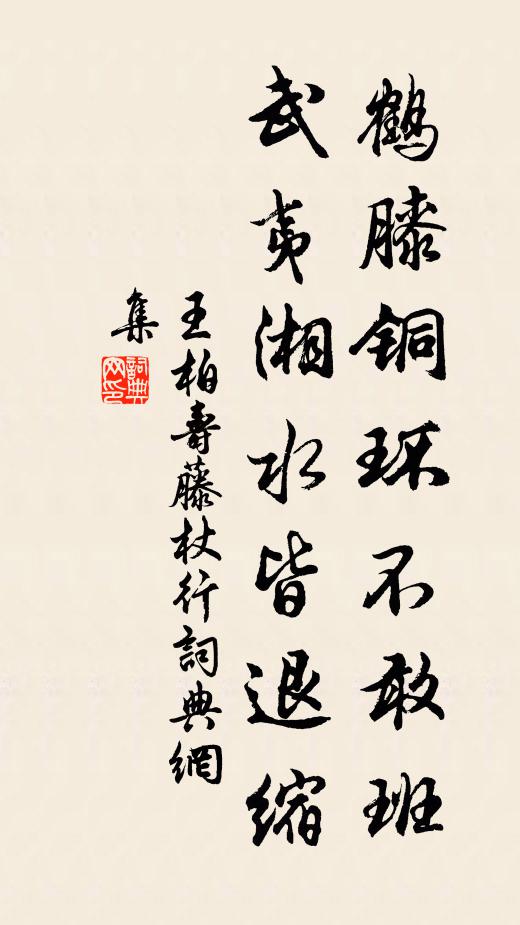 鹤膝铜环不敢班
武夷湘水皆退缩
王柏寿藤杖行詞典網
集
詞典
网印